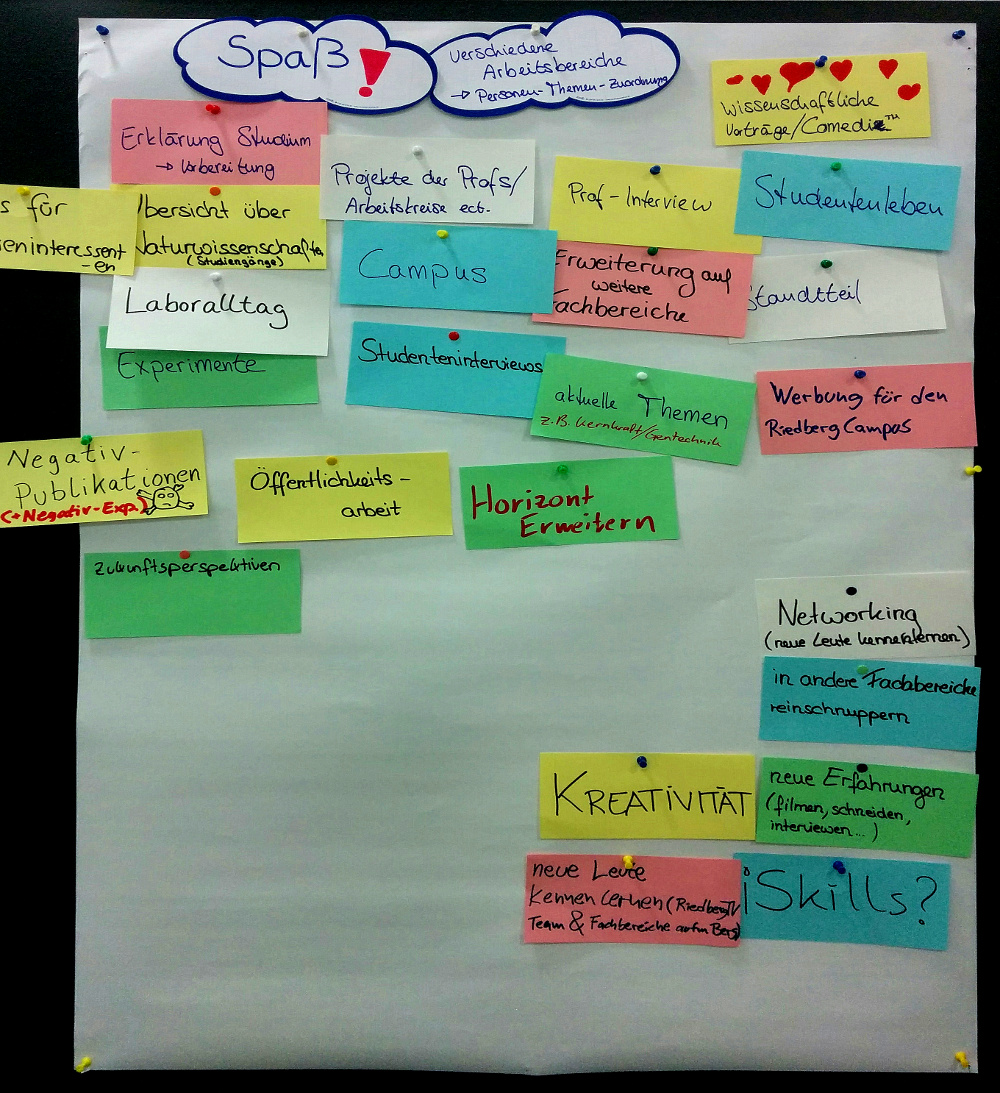 Spaß!
verschiedene
Arbeitsbereiche
→ Personen-Themen-Zuordnung
wissenschaftliche
Vorträge/Comedie™
Erklärung Studium
→ Vorbereitung
Projekte der Profs/
Arbeitskreise ect.
Prof-Interview
Studentenleben
s für
eninteressent
-en
Übersicht über
Naturwissenschaften
(Studiengänge)
Campus
Erweiterung auf
weitere
Fachbereiche
Standtteil
Laboralltag
Experimente
Studenteninterviews
aktuelle Themen
z.B. Kernkraft/Gentechnik
Werbung für den
Riedberg Campus
Negativ-
Publikationen
(+Negativ-Exp.)
Öffentlichkeits-
arbeit
Horizont
Erweitern
Zukunftsperspektiven
Networking
(neue Leute kennenlernen)
in andere Fachbereiche
reinschnuppern
KREATIVITÄT
neue Erfahrungen
(filmen, schneiden,
interviewen...)
neue Leute
kennen lernen (RiedbergTV
Team & Fachbereiche aufm Berg)
iSkills?